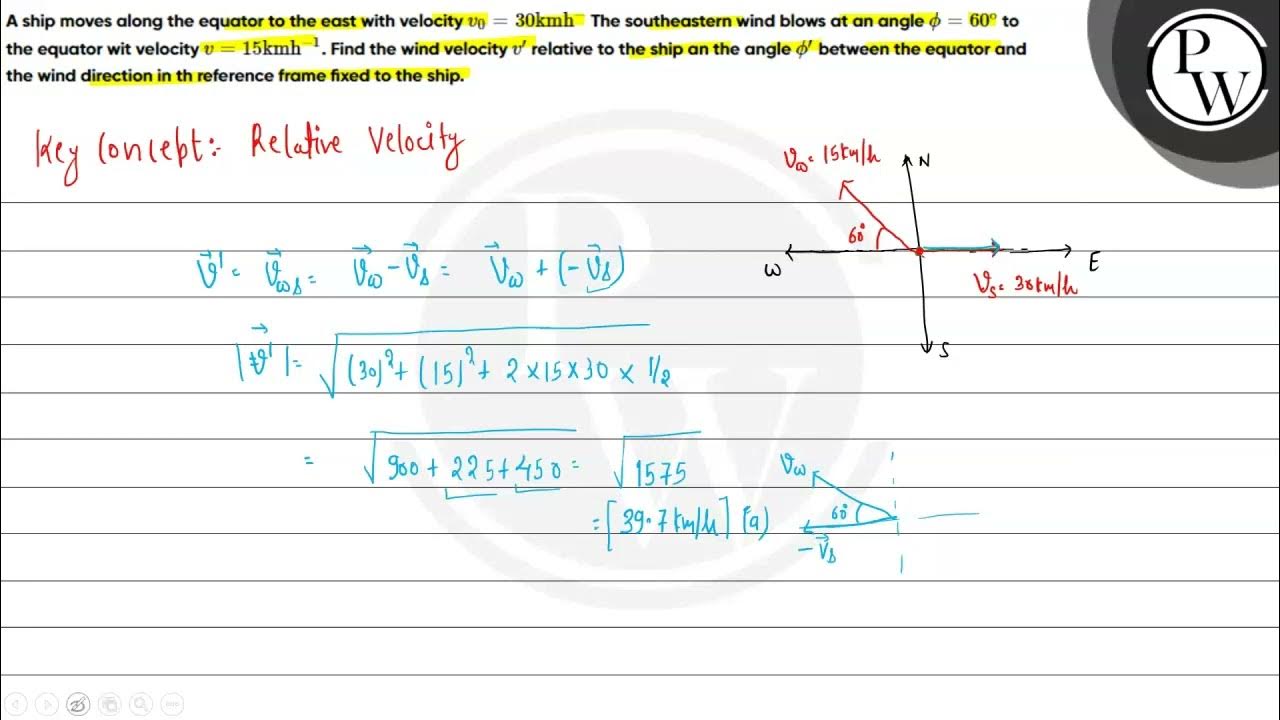 A ship moves along the equator to the east with velocity v₀ = 30kmh⁻ The southeastern wind blows at an angle ϕ = 60° to
the equator wit velocity v = 15kmh⁻¹. Find the wind velocity v′ relative to the ship an the angle ϕ′ between the equator and
the wind direction in th reference frame fixed to the ship.
P
W
Key Concept:- Relative Velocity
V_ω = 15km/h
N
60°
W
E
V_s = 30km/h
S
V⃗' = V⃗_ωs = V⃗_ω - V⃗_s = V⃗_ω + (-V⃗_s)
|V⃗'| = √((30)² + (15)² + 2 × 15 × 30 × 1/2)
= √(900 + 225 + 450) = √1575
= [39.7 km/h] (a)
V_ω
60°
-V⃗_s